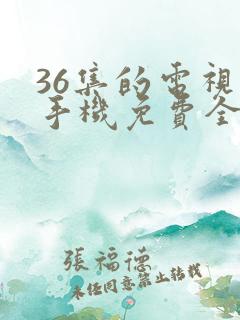 36集的電視
手機免費全
張福德
未经同意禁止转载